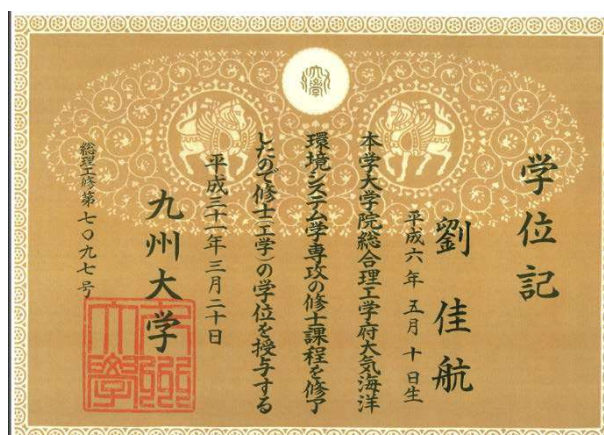 学位記
劉佳航
平成六年五月十日生
本学大学院総合理工学府大気海洋
環境システム学専攻の修士課程を修了
したので修士(工学)の学位を授与する
平成三十一年三月二十日
九州大学
総理工修第七〇九七号
九州大学